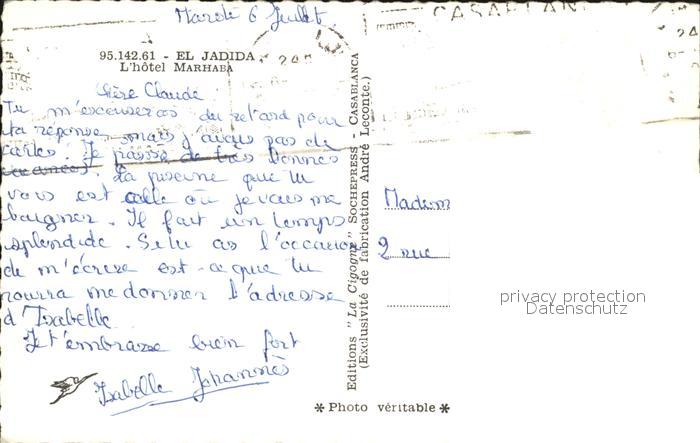 Mardi 6 Juillet.
CASABLANCA
95.142.61 - EL JADIDA
L'hôtel MARHABA
Chère Claude
Tu m'excuseras du retard pour
ta réponse mais j'avais pas de
cartes. Je passe de très bonnes
vacances. La piscine que tu
vois est celle où je vais me
baigner. Il fait un temps
splendide. Si tu as l'occasion
de m'écrire est-ce que tu
pourra me donner l'adresse
d'Isabelle
Je t'embrasse bien fort
Isabelle Johannès
Editions "La Cigogne" SOCHEPRESS CASABLANCA
(Exclusivité de fabrication André Leconte.)
Madam
2 rue
privacy protection
Datenschutz
* Photo véritable *